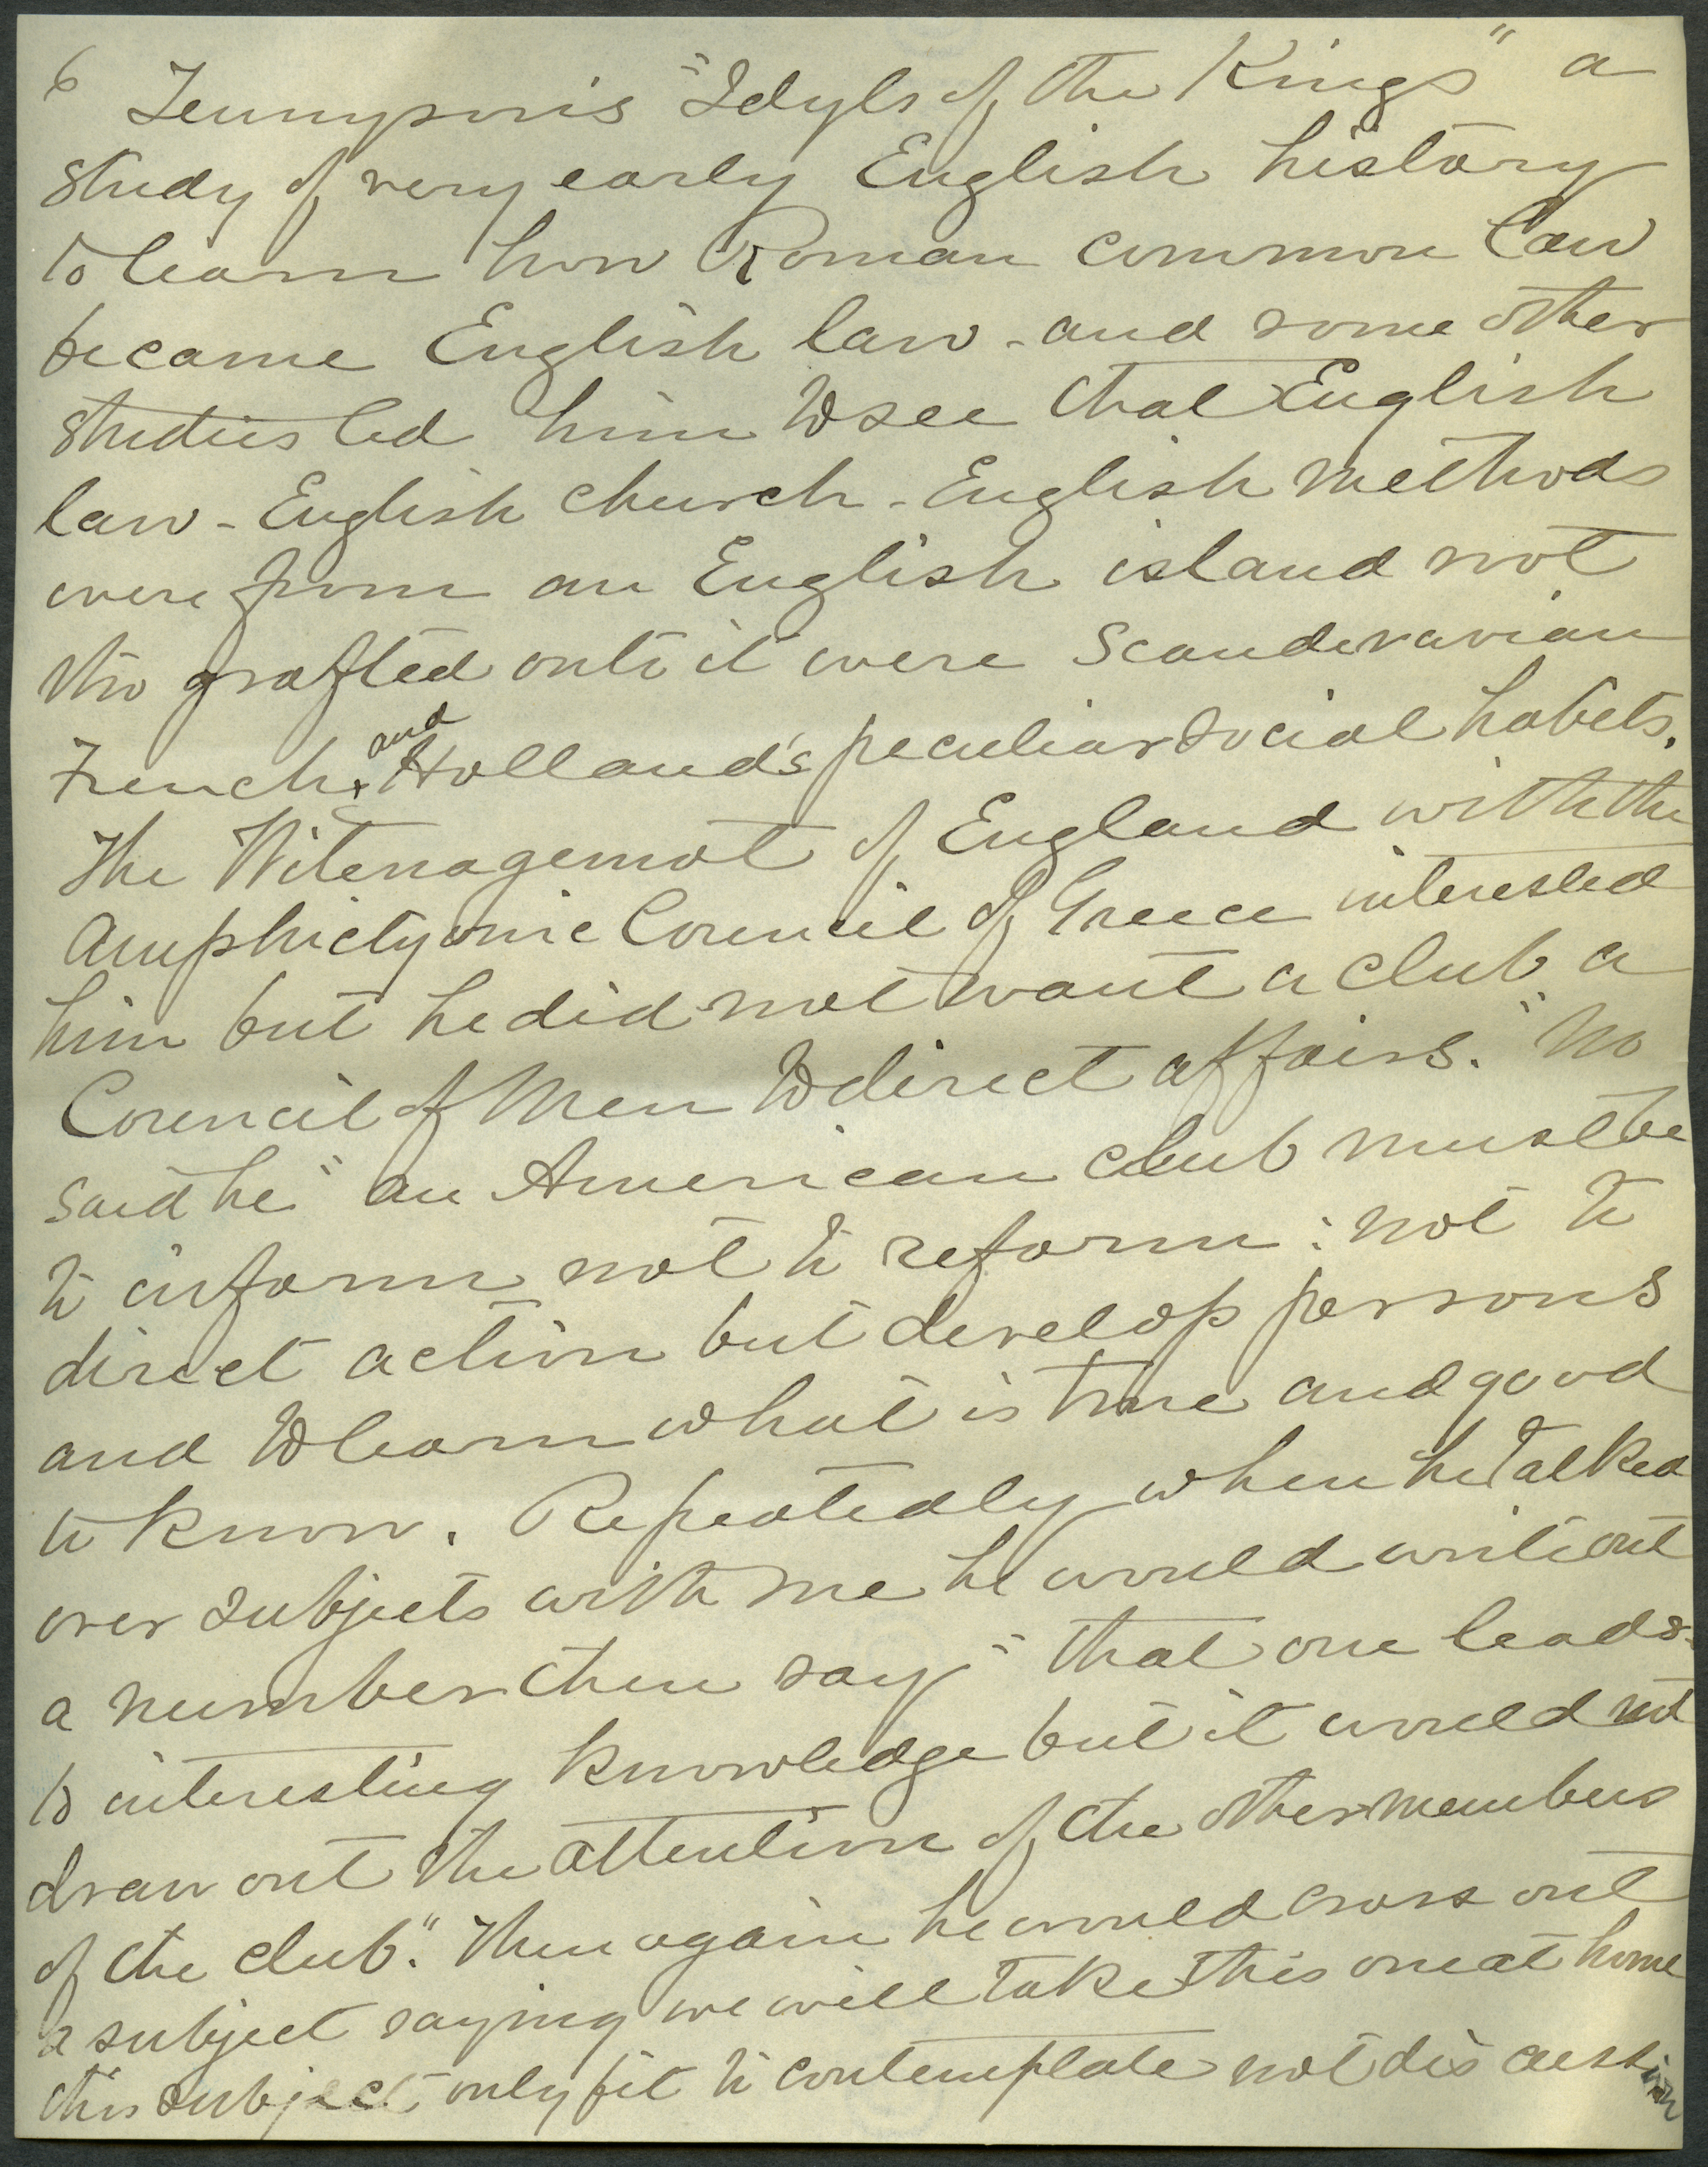 6 Tennyson's "Idyls of the Kings" a
study of very early English history
to learn how Roman common law
became English law - and some other
studies led him to see that English
law - English church - English methods
were from an English island not
tho grafted onto it were Scandinavian
French, and Holland's peculiar social habits.
The Witenagemot of England with the
Amphictyonic Council of Greece interested
him but he did not want a club a
Council of Men to direct affairs. "No
said he" an American club must be
to inform not to reform: not to
direct action but develop persons
and to learn what is true and good
to know. Repeatedly when he talked
over subjects with me he would write out
a number then say "that one leads
to interesting knowledge but it would not
draw out the attention of the other members
of the club." Then again he would cross out
a subject saying we will take this one at home
this subject only fit to contemplate not discussion